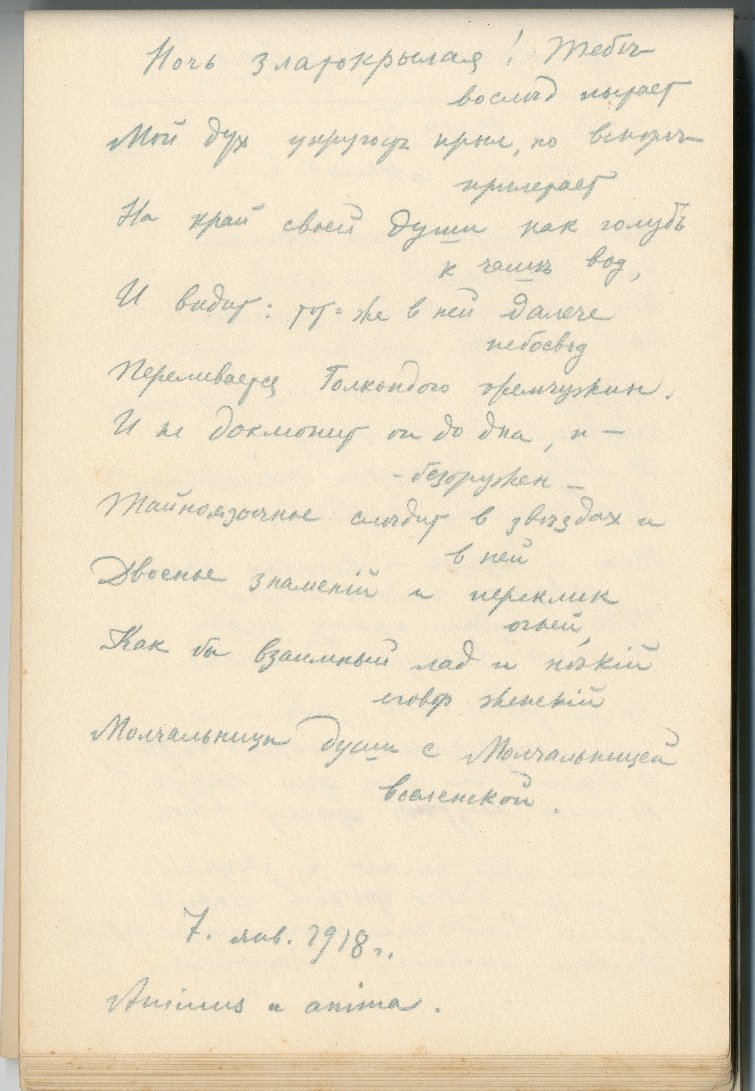 Ночь златокрылая! Тебѣ
вослѣд пытает
Мой дух упругость крыл, но вскорѣ
прилетает
На край своей души как голубь
к чашѣ вод,
И видит: тот-же в ней далече
небосвод
Переливается Голкондою жемчужин.
И не докмонит он до дна, и –
– безоружен –
Тайноязычное слѣдит в звѣздах и
в ней
Двоенье знаменій и переклик
огней,
Как бы взаимный лад и нѣкій
сговор женскій
Молчальницы души с Молчальницей
вселенской.
7. янв. 1918 г.
Animus и anima.